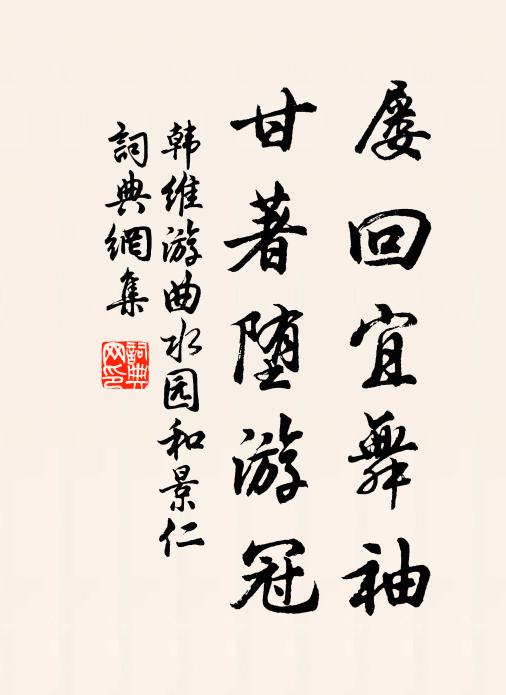 屡回宜舞袖
甘著堕游冠
韩维游曲水园和景仁
詞典網集
詞典
网印